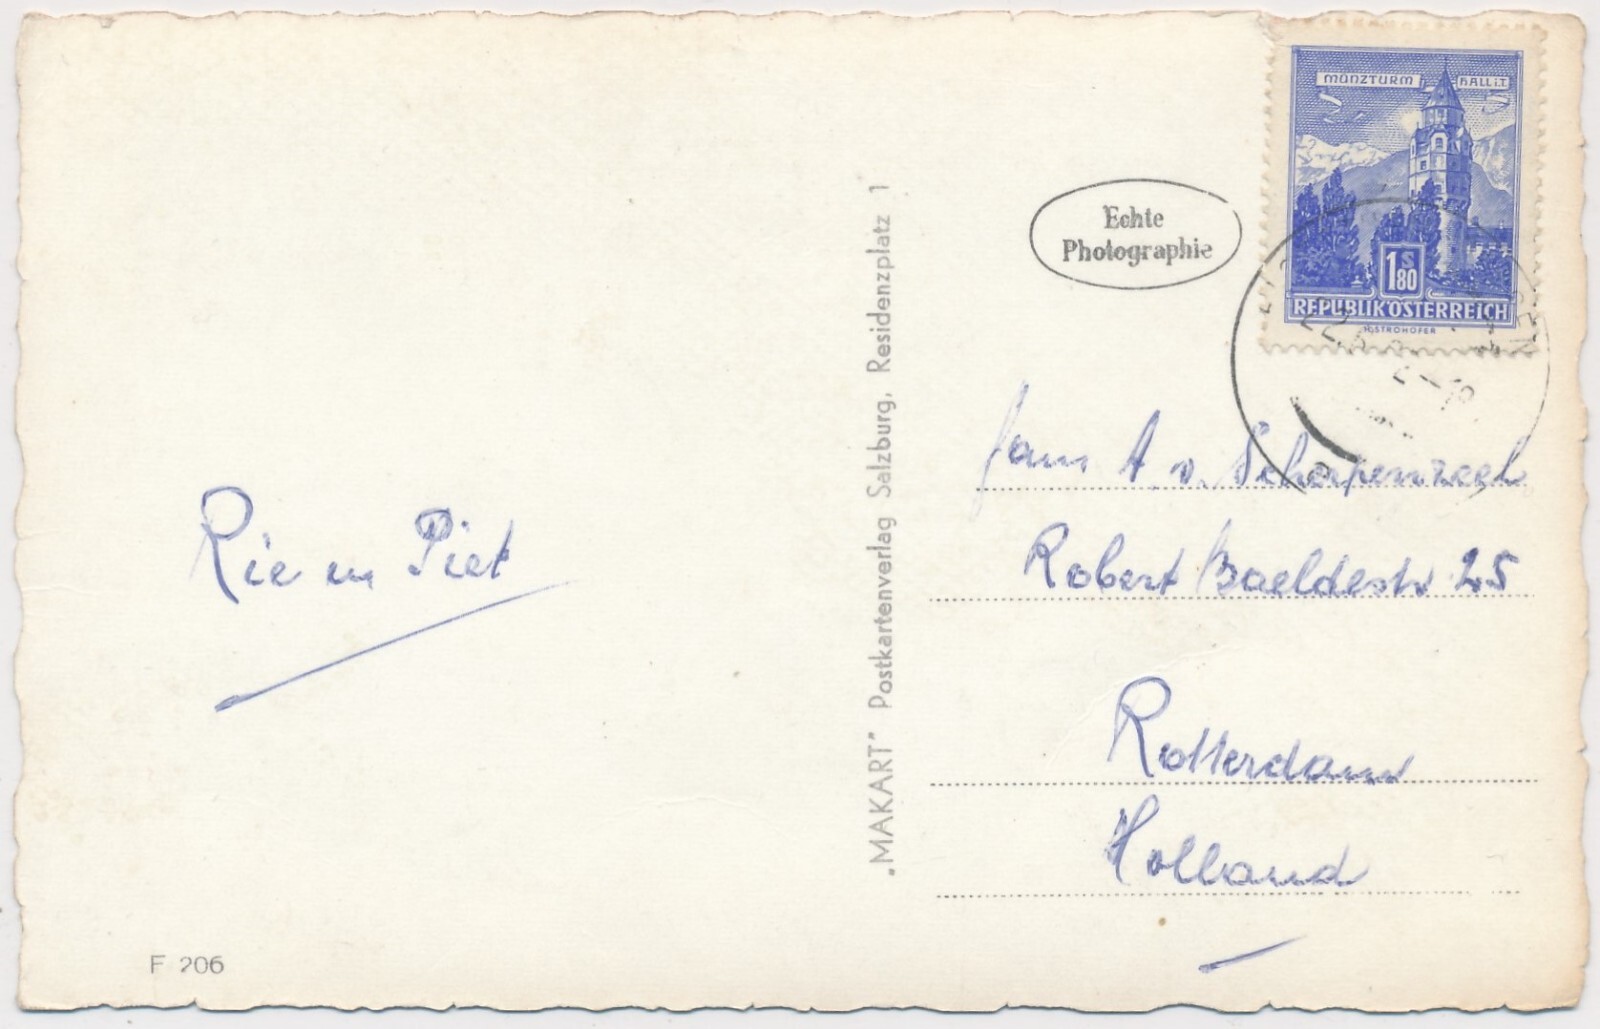 MÜNZTURM HALL i.T.
1 S 80
REPUBLIK ÖSTERREICH
H. STROHOFER
Echte
Photographie
„MAKART" Postkartenverlag Salzburg, Residenzplatz 1
Rie en Piet
Fam A. v. Scherpenzeel
Robert Baeldestr 25
Rotterdam
Holland
F 206